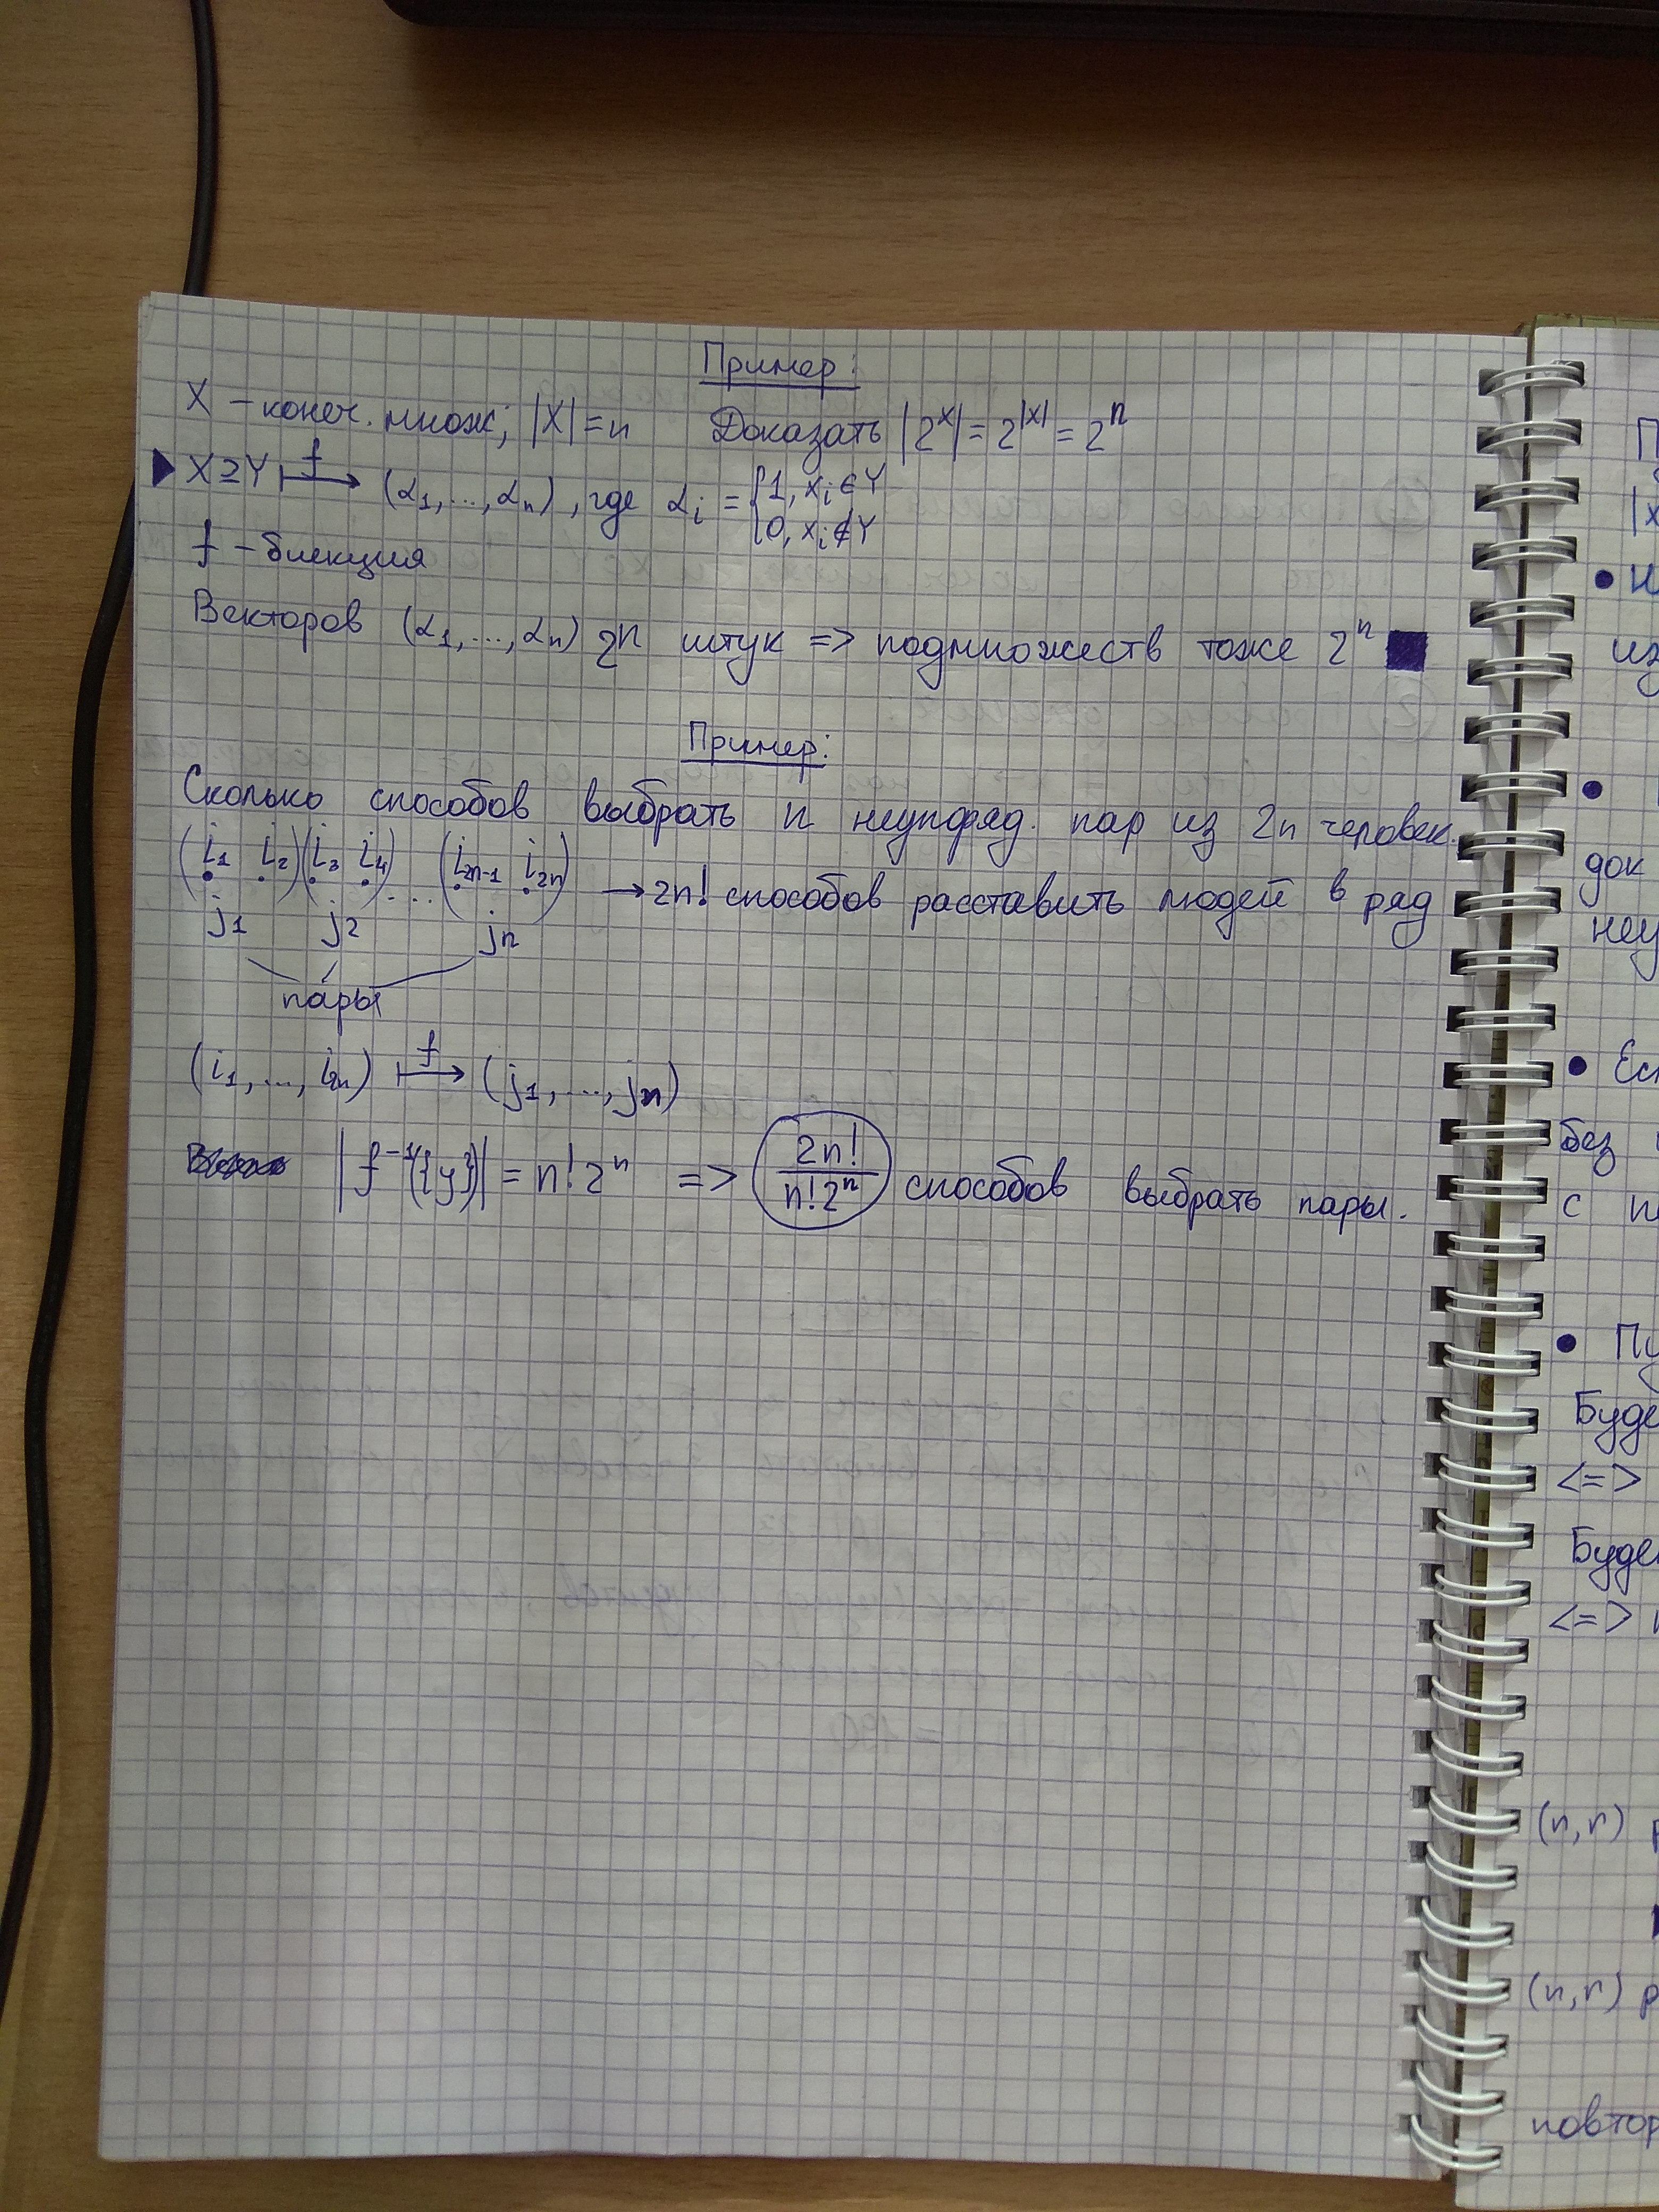 Пример:
X – конеч. множ; |X| = n Доказать |2^X| = 2^|X| = 2^n
▶ X ⊇ Y ⟼ f (α_1, ..., α_n), где α_i = { 1, x_i ∈ Y
0, x_i ∉ Y
f – биекция
Векторов (α_1, ..., α_n) 2^n штук => подмножеств тоже 2^n ■
Пример:
Сколько способов выбрать n неупоряд. пар из 2n человек.
(i_1 i_2)(i_3 i_4) ... (i_2n-1 i_2n) → 2n! способов расставить людей в ряд
j_1 j_2 j_n
пары
(i_1, ..., i_2n) ⟼ f (j_1, ..., j_n)
|f^-1({y})| = n! 2^n => 2n! / n! 2^n способов выбрать пары.
|x
из
док
неу
• Ес
без
с
• Пу
Буде
<=>
Буде
<=>
(n, r)
(n, r) р
повтор